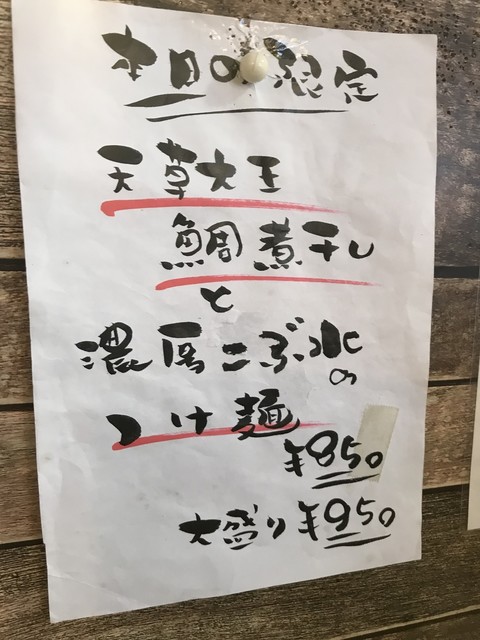 本日の限定
天草大王
鯛煮干し
と
濃厚こぶ水
の
つけ麺
¥850
大盛り ¥950